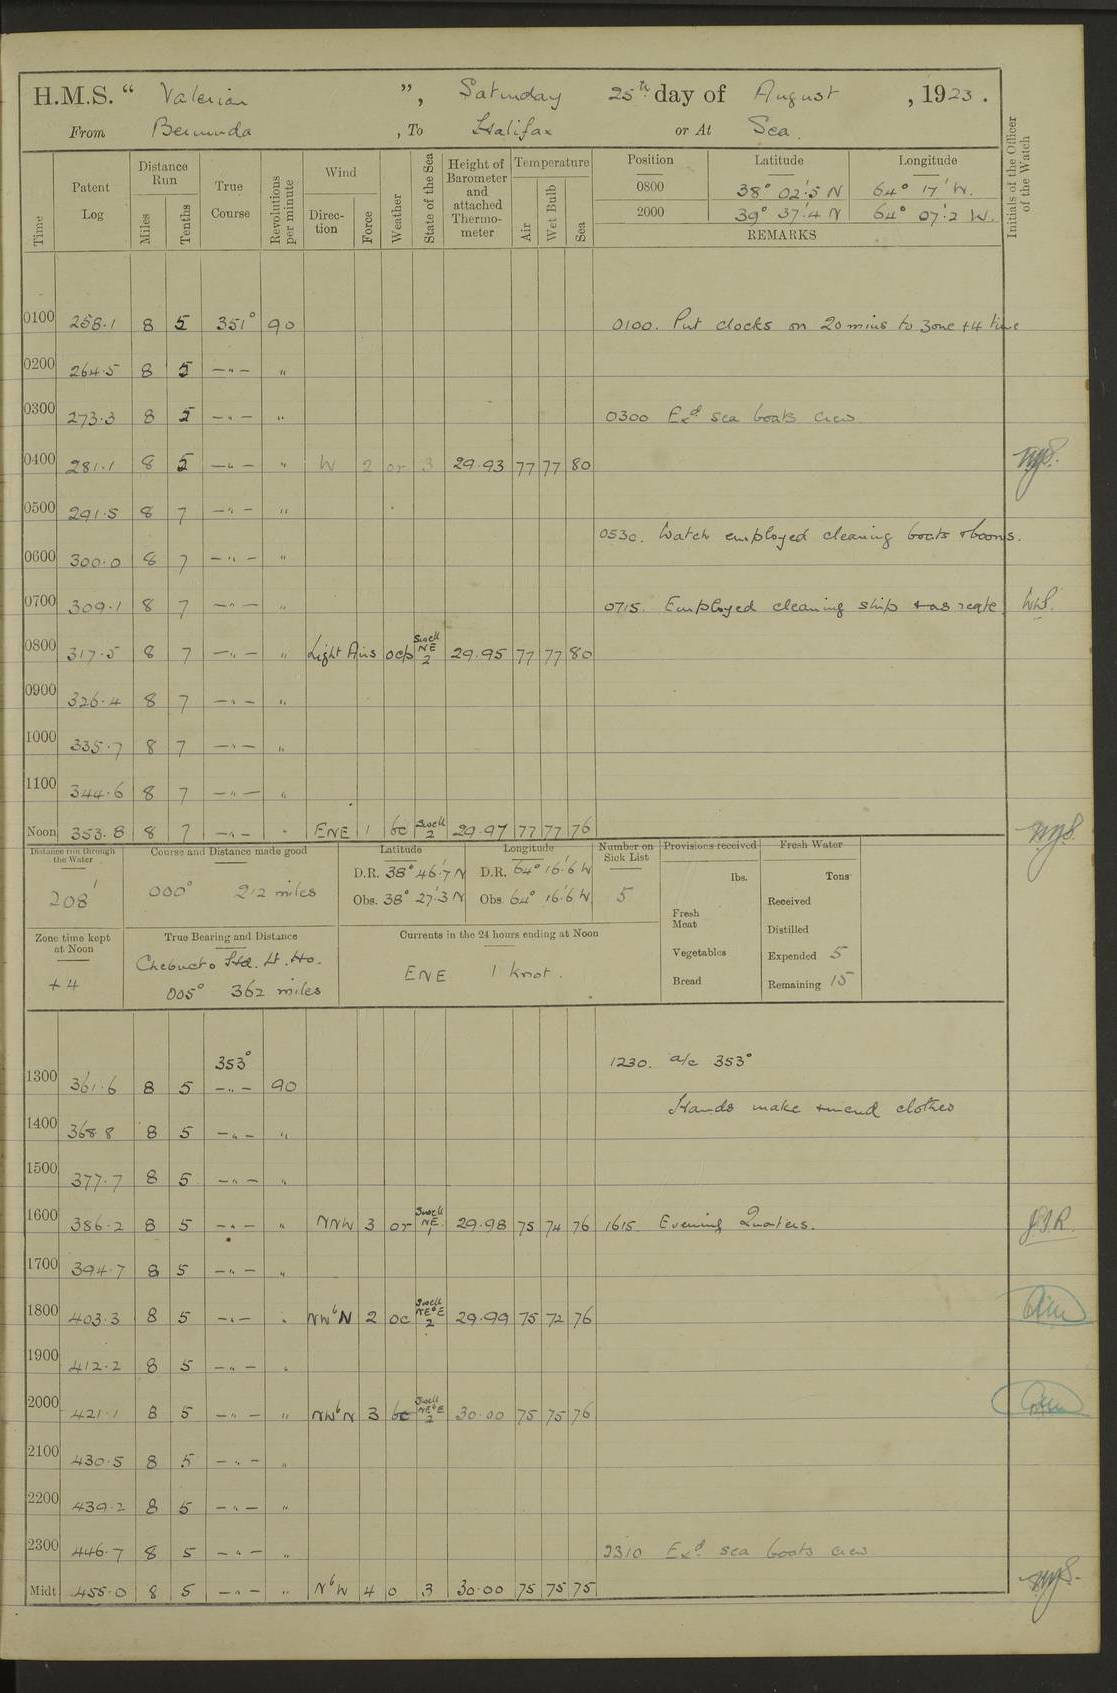 H.M.S. “ Valerian ”, Saturday 25th day of August , 1923 .
From Bermuda , To Halifax or At Sea.
Time Patent Log Distance Run Miles Tenths True Course Revolutions per minute Wind Direction Force Weather State of the Sea Height of Barometer and attached Thermometer Temperature Air Wet Bulb Sea Position Latitude Longitude Initials of the Officer of the Watch
0800 38° 02'.5 N 64° 17' W.
2000 39° 37'.4 N 64° 07'.2 W.
REMARKS
0100 258.1 8 5 351° 90 0100. Put clocks on 20 mins to Zone +4 time
0200 264.5 8 5 — " — "
0300 273.3 8 5 — " — " 0300 Exd. sea boats crew
0400 281.1 8 5 — " — " W 2 or 3 29.93 77 77 80
0500 291.5 8 7 — " — "
0530. Watch employed cleaning boats & booms.
0600 300.0 8 7 — " — "
0700 309.1 8 7 — " — " 0715. Employed cleaning ship & as reqte.
0800 317.5 8 7 — " — " Light Airs ocp Swell NE 2 29.95 77 77 80
0900 326.4 8 7 — " — "
1000 335.7 8 7 — " — "
1100 344.6 8 7 — " — "
Noon 353.8 8 7 — " — " ENE 1 bc Swell 2 29.97 77 77 76
Distance run through the Water Course and Distance made good Latitude Longitude Number on Sick List Provisions received Fresh Water
208' 000° 212 miles D.R. 38° 46'.7 N D.R. 64° 16'.6 W 5 lbs. Tons
Obs. 38° 27'.3 N Obs. 64° 16'.6 W Received
Fresh Meat Distilled
Zone time kept at Noon True Bearing and Distance Currents in the 24 hours ending at Noon
+4 Chebucto Hd. Lt. Ho. ENE 1 knot. Vegetables Expended 5
005° 362 miles Bread Remaining 15
353° 1230. a/c 353°
1300 361.6 8 5 — " — 90
Hands make & mend clothes
1400 368.8 8 5 — " — "
1500 377.7 8 5 — " — "
1600 386.2 8 5 — " — " NNW 3 or Swell NE 1 29.98 75 74 76 1615 Evening Quarters. J.I.R.
1700 394.7 8 5 — " — "
1800 403.3 8 5 — " — " NWbN 2 oc Swell NEbE 2 29.99 75 72 76
1900 412.2 8 5 — " — "
2000 421.1 8 5 — " — " NWbN 3 bc Swell NEbE 2 30.00 75 75 76
2100 430.5 8 5 — " — "
2200 439.2 8 5 — " — "
2300 446.7 8 5 — " — " 2310 Exd. sea boats crew
Midt 455.0 8 5 — " — " NbW 4 o 3 30.00 75 75 75